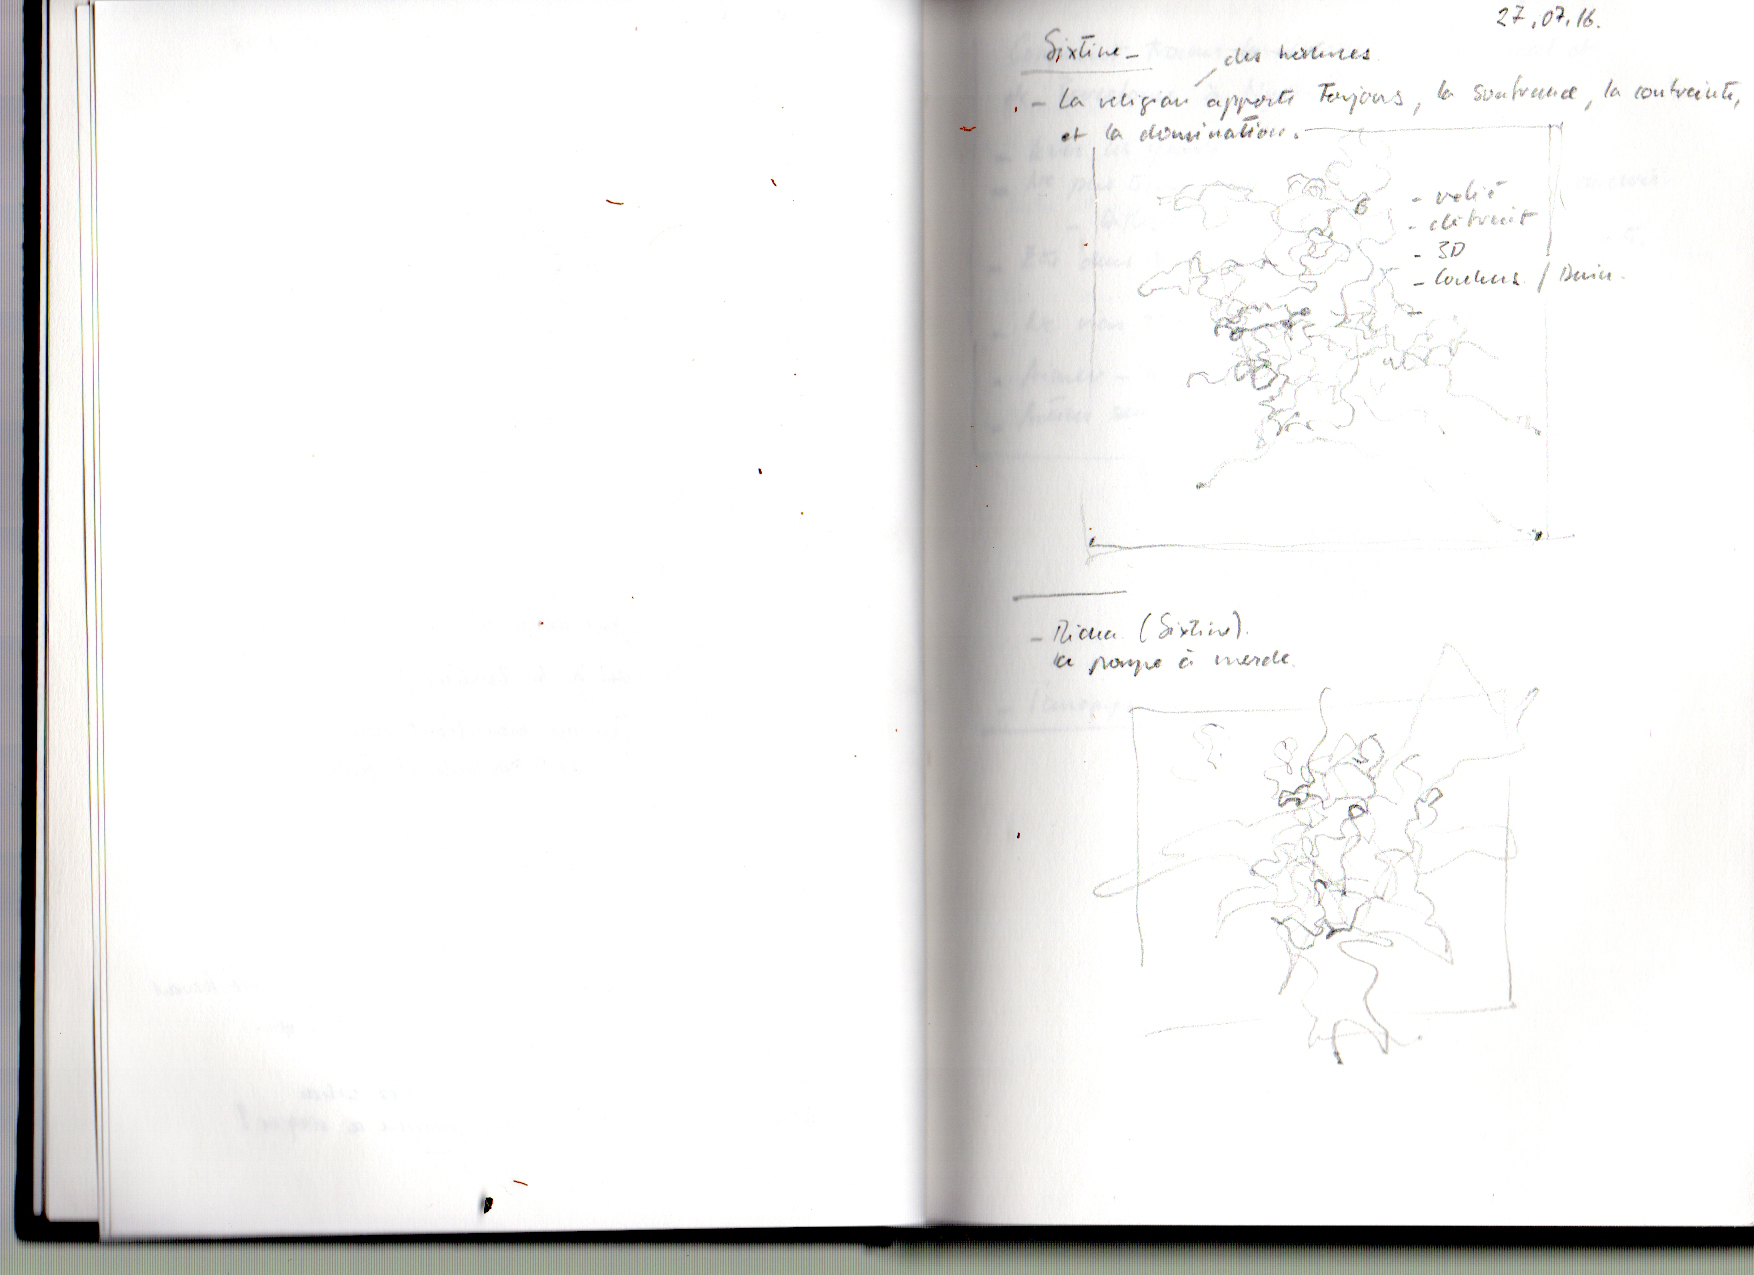 27.07.16.
Sixtine –
des hommes
– La religion apporte Toujours, la souffrance, la contrainte,
et la domination.
– relié
– détruit
– 3D
– Couleurs / Dessin.
– (Sixtine).
la pompe à merde.